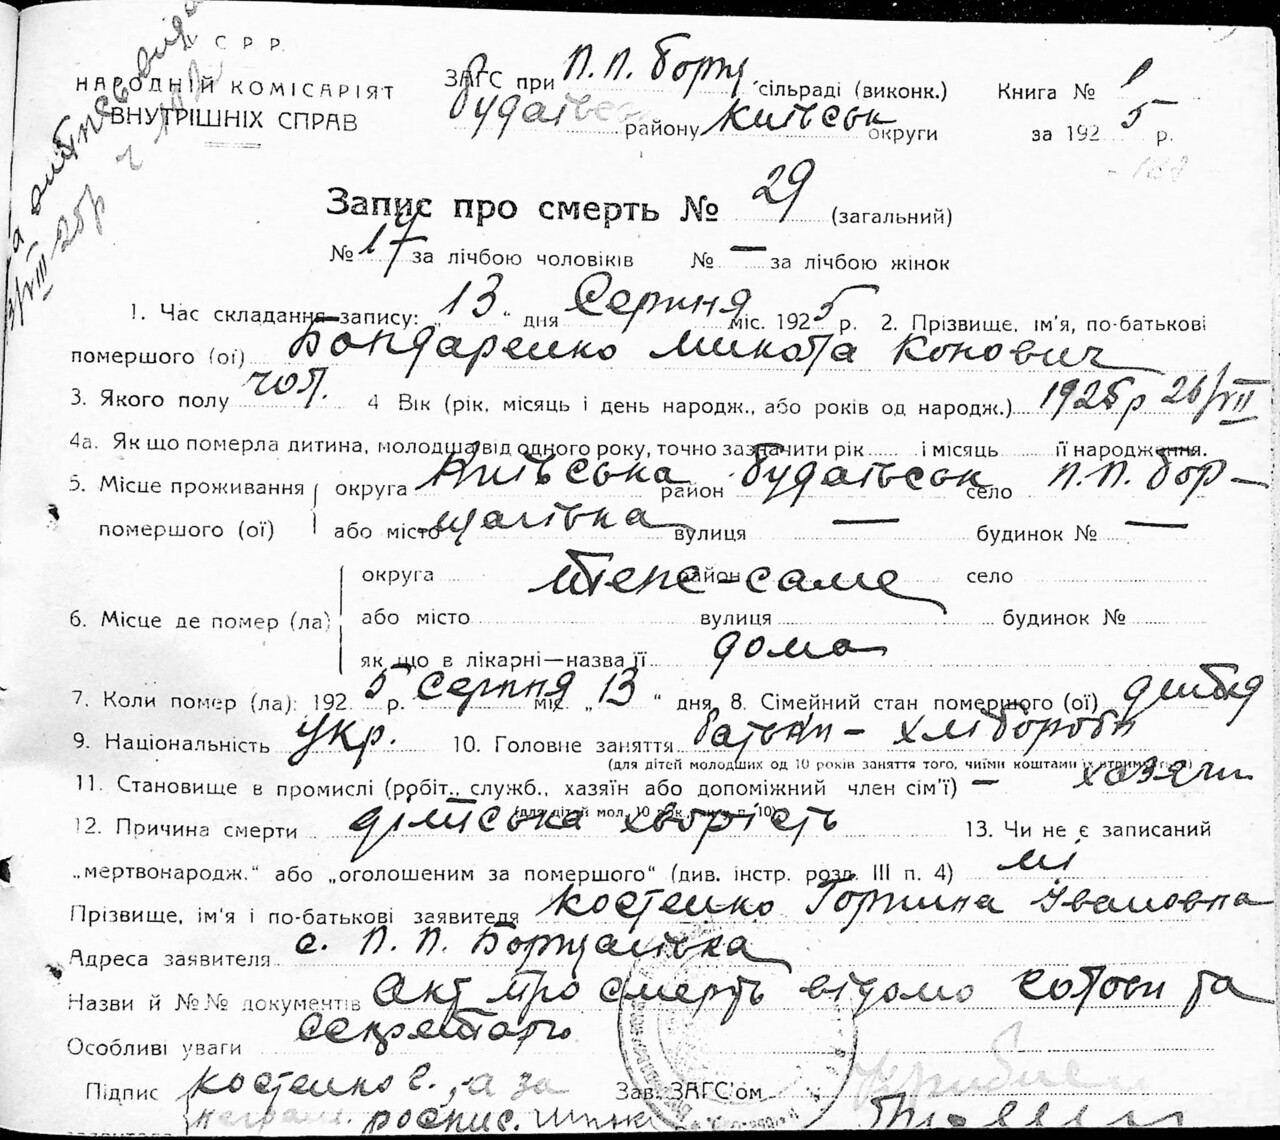 У С Р Р.
НАРОДНІЙ КОМІСАРІЯТ
ВНУТРІШНІХ СПРАВ
ЗАГС при П.П. Борщ. сільраді (виконк.)
Будаївськ району Київськ округи
Книга № 1
за 1925 р.
Запис про смерть № 29 (загальний)
№ 17 за лічбою чоловіків № — за лічбою жінок
1. Час складання запису: „13" дня Серпня міс. 1925 р. 2. Прізвище, ім'я, по-батькові
помершого (ої) Бондаренко Микола Конович
3. Якого полу чол. 4 Вік (рік, місяць і день народж., або років од народж.) 1925 р 26/VII
4а. Як що померла дитина, молодша від одного року, точно зазначити рік і місяць її народження.
5. Місце проживання помершого (ої) округа Київська район Будаївськ село П.П. Бор-
або місто щагівка вулиця — будинок № —
6. Місце де помер (ла) округа район село теж-саме
або місто вулиця будинок №
як що в лікарні—назва її дома
7. Коли помер (ла): 1925 р. Серпня міс. „13" дня 8. Сімейний стан помершого (ої) дитина
9. Національність Укр. 10. Головне заняття батьки - хлібороби
(для дітей молодших од 10 років заняття того, чиїми коштами їх утримується)
11. Становище в промислі (робіт., служб., хазяїн або допоміжний член сім'ї) — хазяїн
(для дітей мол. 10 рок. див. п. 10)
12. Причина смерти дітська хворість 13. Чи не є записаний
„мертвонародж." або „оголошеним за помершого" (див. інстр. розд. III п. 4) ні
Прізвище, ім'я і по-батькові заявителя Костенко Горпина Івановна
Адреса заявителя с. П. П. Борщагівка
Назви й №№ документів Акт про смерть відомо голові та
секретарю
Особливі уваги
Підпис Костенко Г., а за Зав. ЗАГС'ом
неграм. роспис.
заявителя